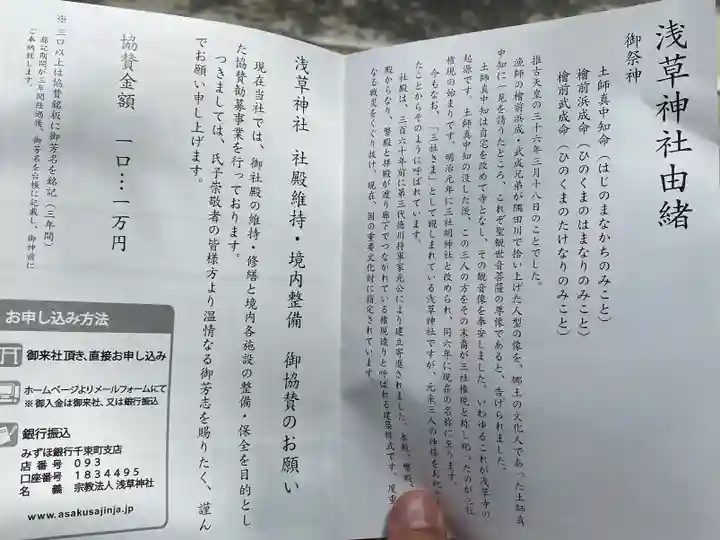 浅草神社由緒
御祭神
土師真中知命（はじのまなかちのみこと）
檜前浜成命（ひのくまのはまなりのみこと）
檜前武成命（ひのくまのたけなりのみこと）
推古天皇の三十六年三月十八日のことでした。
漁師の檜前浜成・武成兄弟が隅田川で拾い上げた人型の像を、郷土の文化人であった土師真
中知に一見を請うたところ、これぞ聖観世音菩薩の尊像であると、告げられました。
土師真中知は自宅を改めて寺となし、その観音像を奉安しました。いわゆるこれが浅草寺の
起源です。土師真中知の没した後、この三人の方をその末裔が三社権現と称し祀ったのが三社
権現の始まりです。明治元年に三社明神社と改められ、同六年に現在の名称に至ります。
今もなお、「三社さま」として親しまれている浅草神社ですが、元来三人の神様をお祀
たことからそのように呼ばれています。
社殿は、三百六十年前に第三代徳川将軍家光公により建立寄進されました。本殿、幣殿、
殿からなり、幣殿と拝殿が渡り廊下でつながれている権現造りと呼ばれる建築様式です。度重
なる戦災をくぐり抜け、現在、国の重要文化財に指定されています。
浅草神社　社殿維持・境内整備　御協賛のお願い
現在当社では、御社殿の維持・修繕と境内各施設の整備・保全を目的とし
た協賛勧募事業を行っております。
つきましては、氏子崇敬者の皆様方より温情なる御芳志を賜りたく、謹ん
でお願い申し上げます。
協賛金額　一口…一万円
※三口以上は協賛銘板に御芳名を銘記（三年間）
銘記期間が三年間経過後、御芳名を台帳に記載し、御神前に
ご奉納致します。
お申し込み方法
御来社頂き、直接お申し込み
ホームページよりメールフォームにて
※御入金は御来社、又は銀行振込
銀行振込
みずほ銀行千束町支店
店番号　093
口座番号　1834495
名義　宗教法人 浅草神社
www.asakusajinja.jp